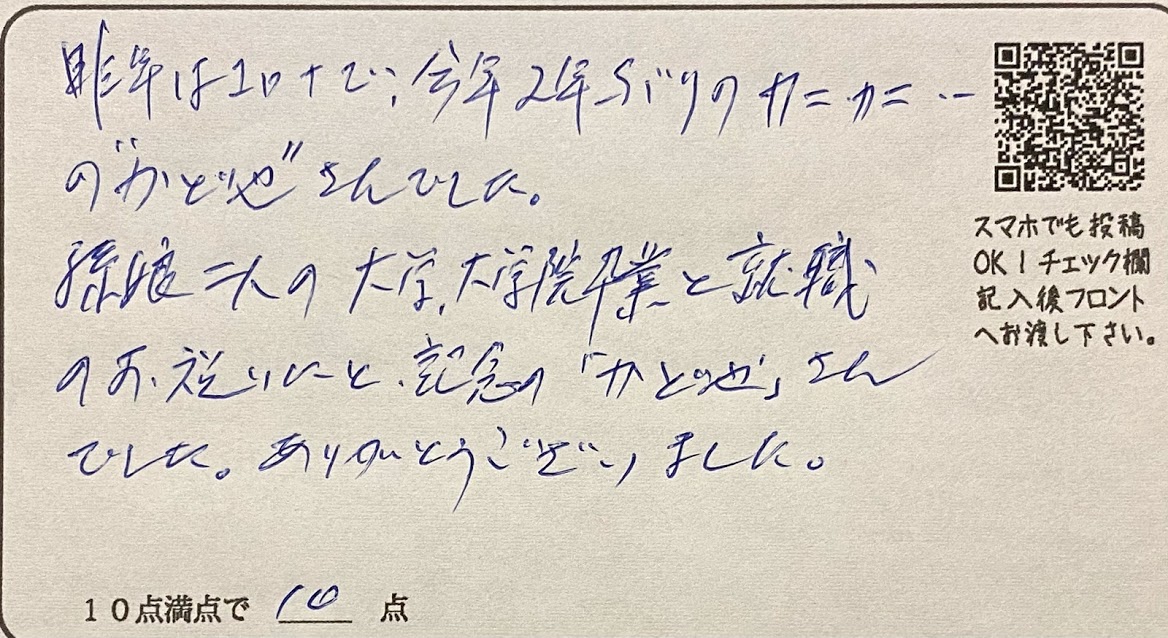 昨年はコロナで、今年2年ぶりのカニカニ…
の"かどや"さんでした。
孫娘二人の大学,大学院卒業と就職
のお祝いにと、記念の「かどや」さん
でした。ありがとうございました。
スマホでも投稿
OK!チェック欄
記入後フロント
へお渡し下さい。
10点満点で 10 点